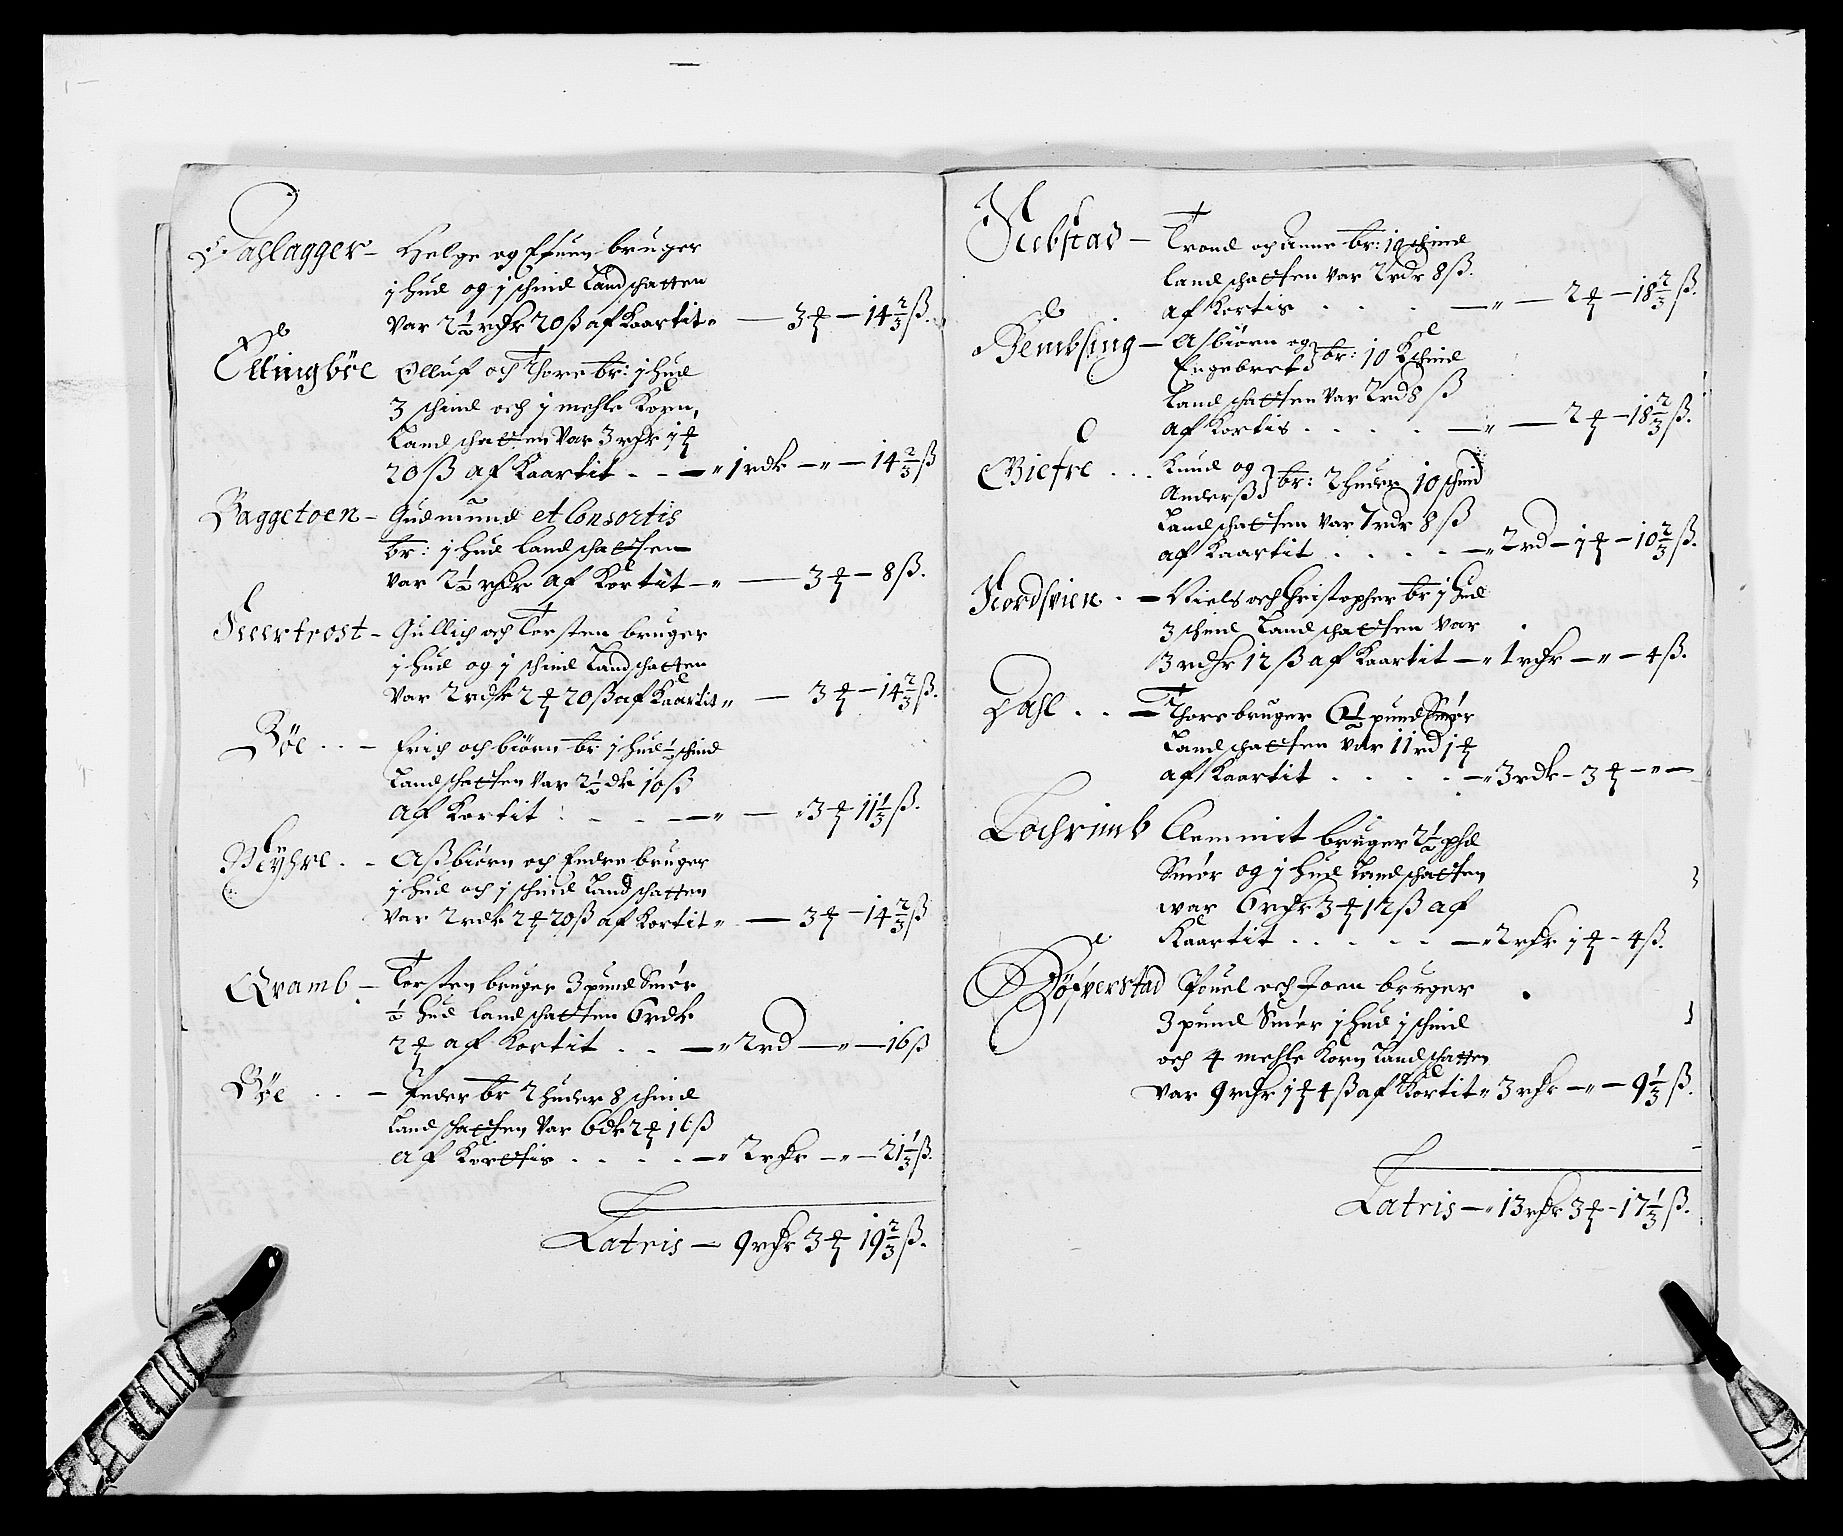 Dahlagger – Helge og Efuen bruger
1 hud og 1 schind Landschatten
var 2½ rdr 20 ß af Kaartit „ — 3 ₰ – 14⅔ ß.
Ellingbøe Olluf och Thore br: 1 hud
3 schind och 1 mehle Korn,
Landschatten var 3 rdr 1 ₰
20 ß af Kaartit . . — „ 1 rdr – „ – 14⅔ ß
Baggetoen – Gudmund et Consortis
br: 1 hud landschatten
var 2½ rdr af Kortit – „ — 3 ₰ – 8 ß.
Gullich och Tersten bruger
1 hud og 1 schind Landschatten
var 2 rdr 2 ₰ 20 ß af Kaartit „ — 3 ₰ – 14⅔ ß.
Bøe . . – Erich och biørn br 1 hud ½ schind
Landschatten var 2½ dr 10 ß
af Kortit . . . — „ — „ 3 ₰ 11⅓ ß.
Myhre . . Aßbiørn och Endre bruger
1 hud och 1 schind Landschatten
var 2 rdr 2 ₰ 20 ß af Kortit „ — 3 ₰ – 14⅔ ß
Qvamb – Tersten bruger 3 pund Smør
½ hud landschatten 6 rdr
2 ₰ af Kortit . . — „ 2 rd — „ — 16 ß
Bøe . . – Peder br 2 huder 8 schind
Landschatten var 6 dr 2 ₰ 16 ß
af Kortis . . . . — „ 2 rdr – „ – 21⅓ ß.
Latris — 9 rdr 3 ₰ 19⅔ ß.
Trond och Anne br: 19 schind
landschatten var 2 rdr 8 ß.
af Kortis . . . . — „ — 2 ₰ – 18⅔ ß.
Rembsing – Asbiørn og
Engebret br: 10 Kschind
Landschatten var 2 rd 8 ß
af Kortis . . . . — „ — 2 ₰ – 18⅔ ß.
Giefre . . . Knud og
Anderß br: 2 huder 10 schind
Landschatten var 7 rdr 8 ß
af Kaartit . . . . — „ 2 rd – 1 ₰ – 10⅔ ß.
Nordsvien . – Niels och Christopher br 1 hud
3 schind Landschatten var
3 rdr 12 ß af Kaartit — „ 1 rdr – „ – 4 ß.
Dahl . . – Thore bruger 6½ pund Smør
Landschatten var 11 rd 1 ₰
af Kaartit . . . . — „ 3 rdr – 3 ₰ – „ –
Lochrimb Clemmit bruger 2½ phd
Smør og 1 hud Landschatten
war 6 rdr 3 ₰ 12 ß af
Kaartit . . . . . — „ 2 rdr 1 ₰ – 4 ß.
Døfverstad Pouel och Joen bruger
3 pund Smør 1 hud 1 schind
och 4 mehle Korn Landschatten
var 9 rdr 1 ₰ 4 ß af Kortit „ 3 rdr – „ – 9⅓ ß.
Latris – „ 13 rdr 3 ₰ – 17⅓ ß.